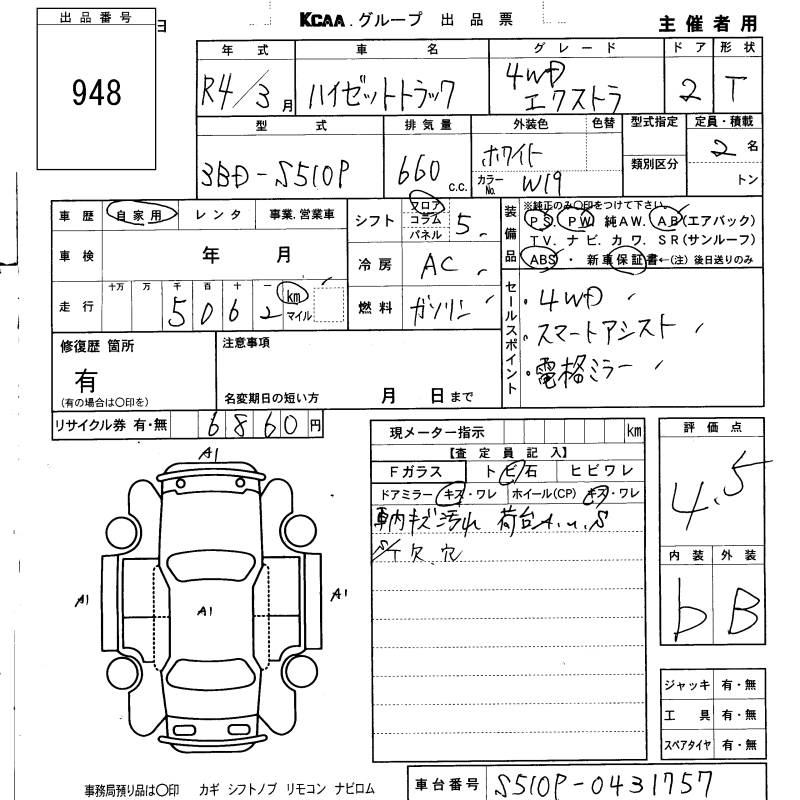 出品番号
948
日
KCAA. グループ 出品票
主催者用
年式 車名 グレード ドア 形状
R4/3月 ハイゼットトラック 4WD エクストラ 2 T
型式 排気量 外装色 色替 型式指定 定員・積載
3BD-S510P 660 c.c. ホワイト カラーNo. W19 類別区分 2名
トン
車歴 自家用 レンタ 事業、営業車
車検 年 月
走行 十万 万 千 百 十 一 km マイル
5 0 6 2
シフト フロア コラム パネル 5
冷房 AC
燃料 ガソリン
装備品
※純正のみ〇印をつけて下さい。
PS. PW. 純AW. AB(エアバック)
TV. ナビ. カワ. SR(サンルーフ)
ABS・ 新車保証書←(注) 後日送りのみ
セールスポイント
・4WD
・スマートアシスト
・電格ミラー
修復歴 箇所
有
(有の場合は〇印を)
注意事項
名変期日の短い方 月 日まで
リサイクル券 有・無 6860円
現メーター指示 km
【査定員記入】
Fガラス トビ石 ヒビワレ
ドアミラー キズ・ワレ ホイール(CP) キズ・ワレ
車内キズ汚れ 荷台A.u.S
S/T欠.穴
評価点
4.5
内装 外装
b B
A1
A1 A1 A1
ジャッキ 有・無
工具 有・無
スペアタイヤ 有・無
事務局預り品は〇印 カギ シフトノブ リモコン ナビロム
車台番号 S510P-0431757